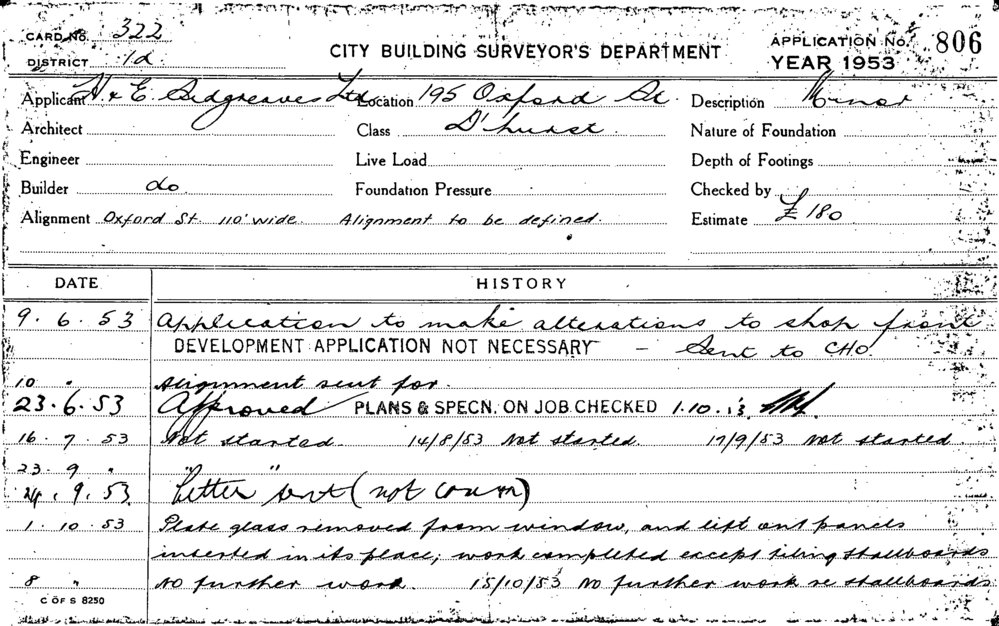 CARD No. 322
DISTRICT 1d.
CITY BUILDING SURVEYOR'S DEPARTMENT
APPLICATION No. 806
YEAR 1953
Applicant H & E Sidgreaves Ltd Location 195 Oxford St. Description Minor
Architect Class D'hurst. Nature of Foundation
Engineer Live Load Depth of Footings
Builder do Foundation Pressure Checked by
Alignment Oxford St. 110' wide Alignment to be defined. Estimate £180
DATE HISTORY
9. 6. 53 Application to make alterations to shop front
DEVELOPMENT APPLICATION NOT NECESSARY - Sent to CHO.
10 " Alignment sent for.
23. 6. 53 Approved PLANS & SPECN. ON JOB CHECKED 1.10.
16. 7. 53 Not started. 14/8/53 Not started 17/9/53 Not started
23. 9 " " "
24. 9. 53 Letter sent (not comm)
1. 10. 53 Plate glass removed from window, and lift out panels
inserted in its place; work completed except tiling stallboards
8 " No further work. 15/10/53 No further work re stallboards
C OF S 8250